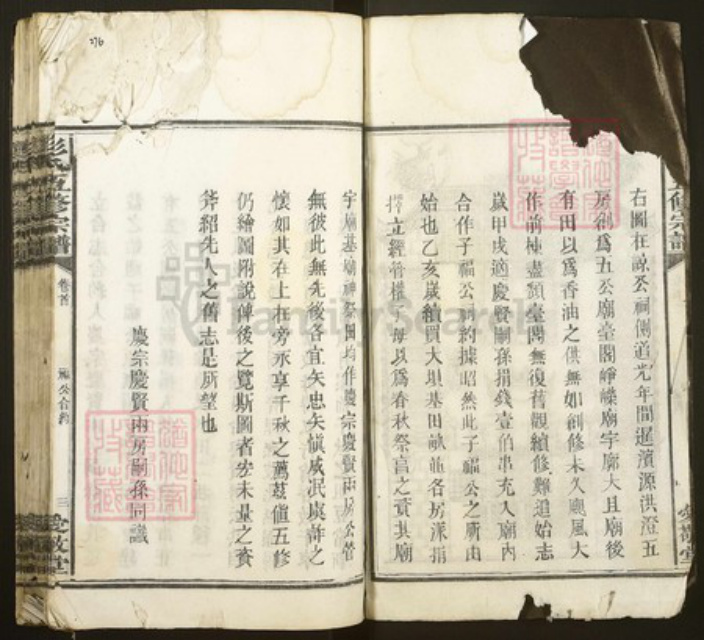 右圖在諒公祠側道光年間暹濱源洪澄五
房創爲五公廟臺閣崢嶸廟宇廓大且廟後
有田以爲香油之供無如創修未久颶風大
作前棟盡頹臺閣無復舊觀續修難追始志
歲甲戌適慶賢嗣孫捐錢壹伯串充入廟内
合作子福公祠約據昭然此子福公之所由
始也乙亥歲續買大垻基田畝 各房深捐
擇立經管權子母以爲春秋祭旨之資其廟
宇廟基廟神祭圖均作慶宗慶賢兩房公管
無彼此無先後各宜矢忠矢愼咸泯虞詐之
懷如其在上在旁永享千秋之薦茲値五修
仍繪圖附說俾後之覽斯圖者安未量之資
斧紹先人之舊志是所望也
慶宗慶賢兩房嗣孫同識
彭氏五修宗譜
卷首
公合約
三
愛敬堂
276
FamilySearch